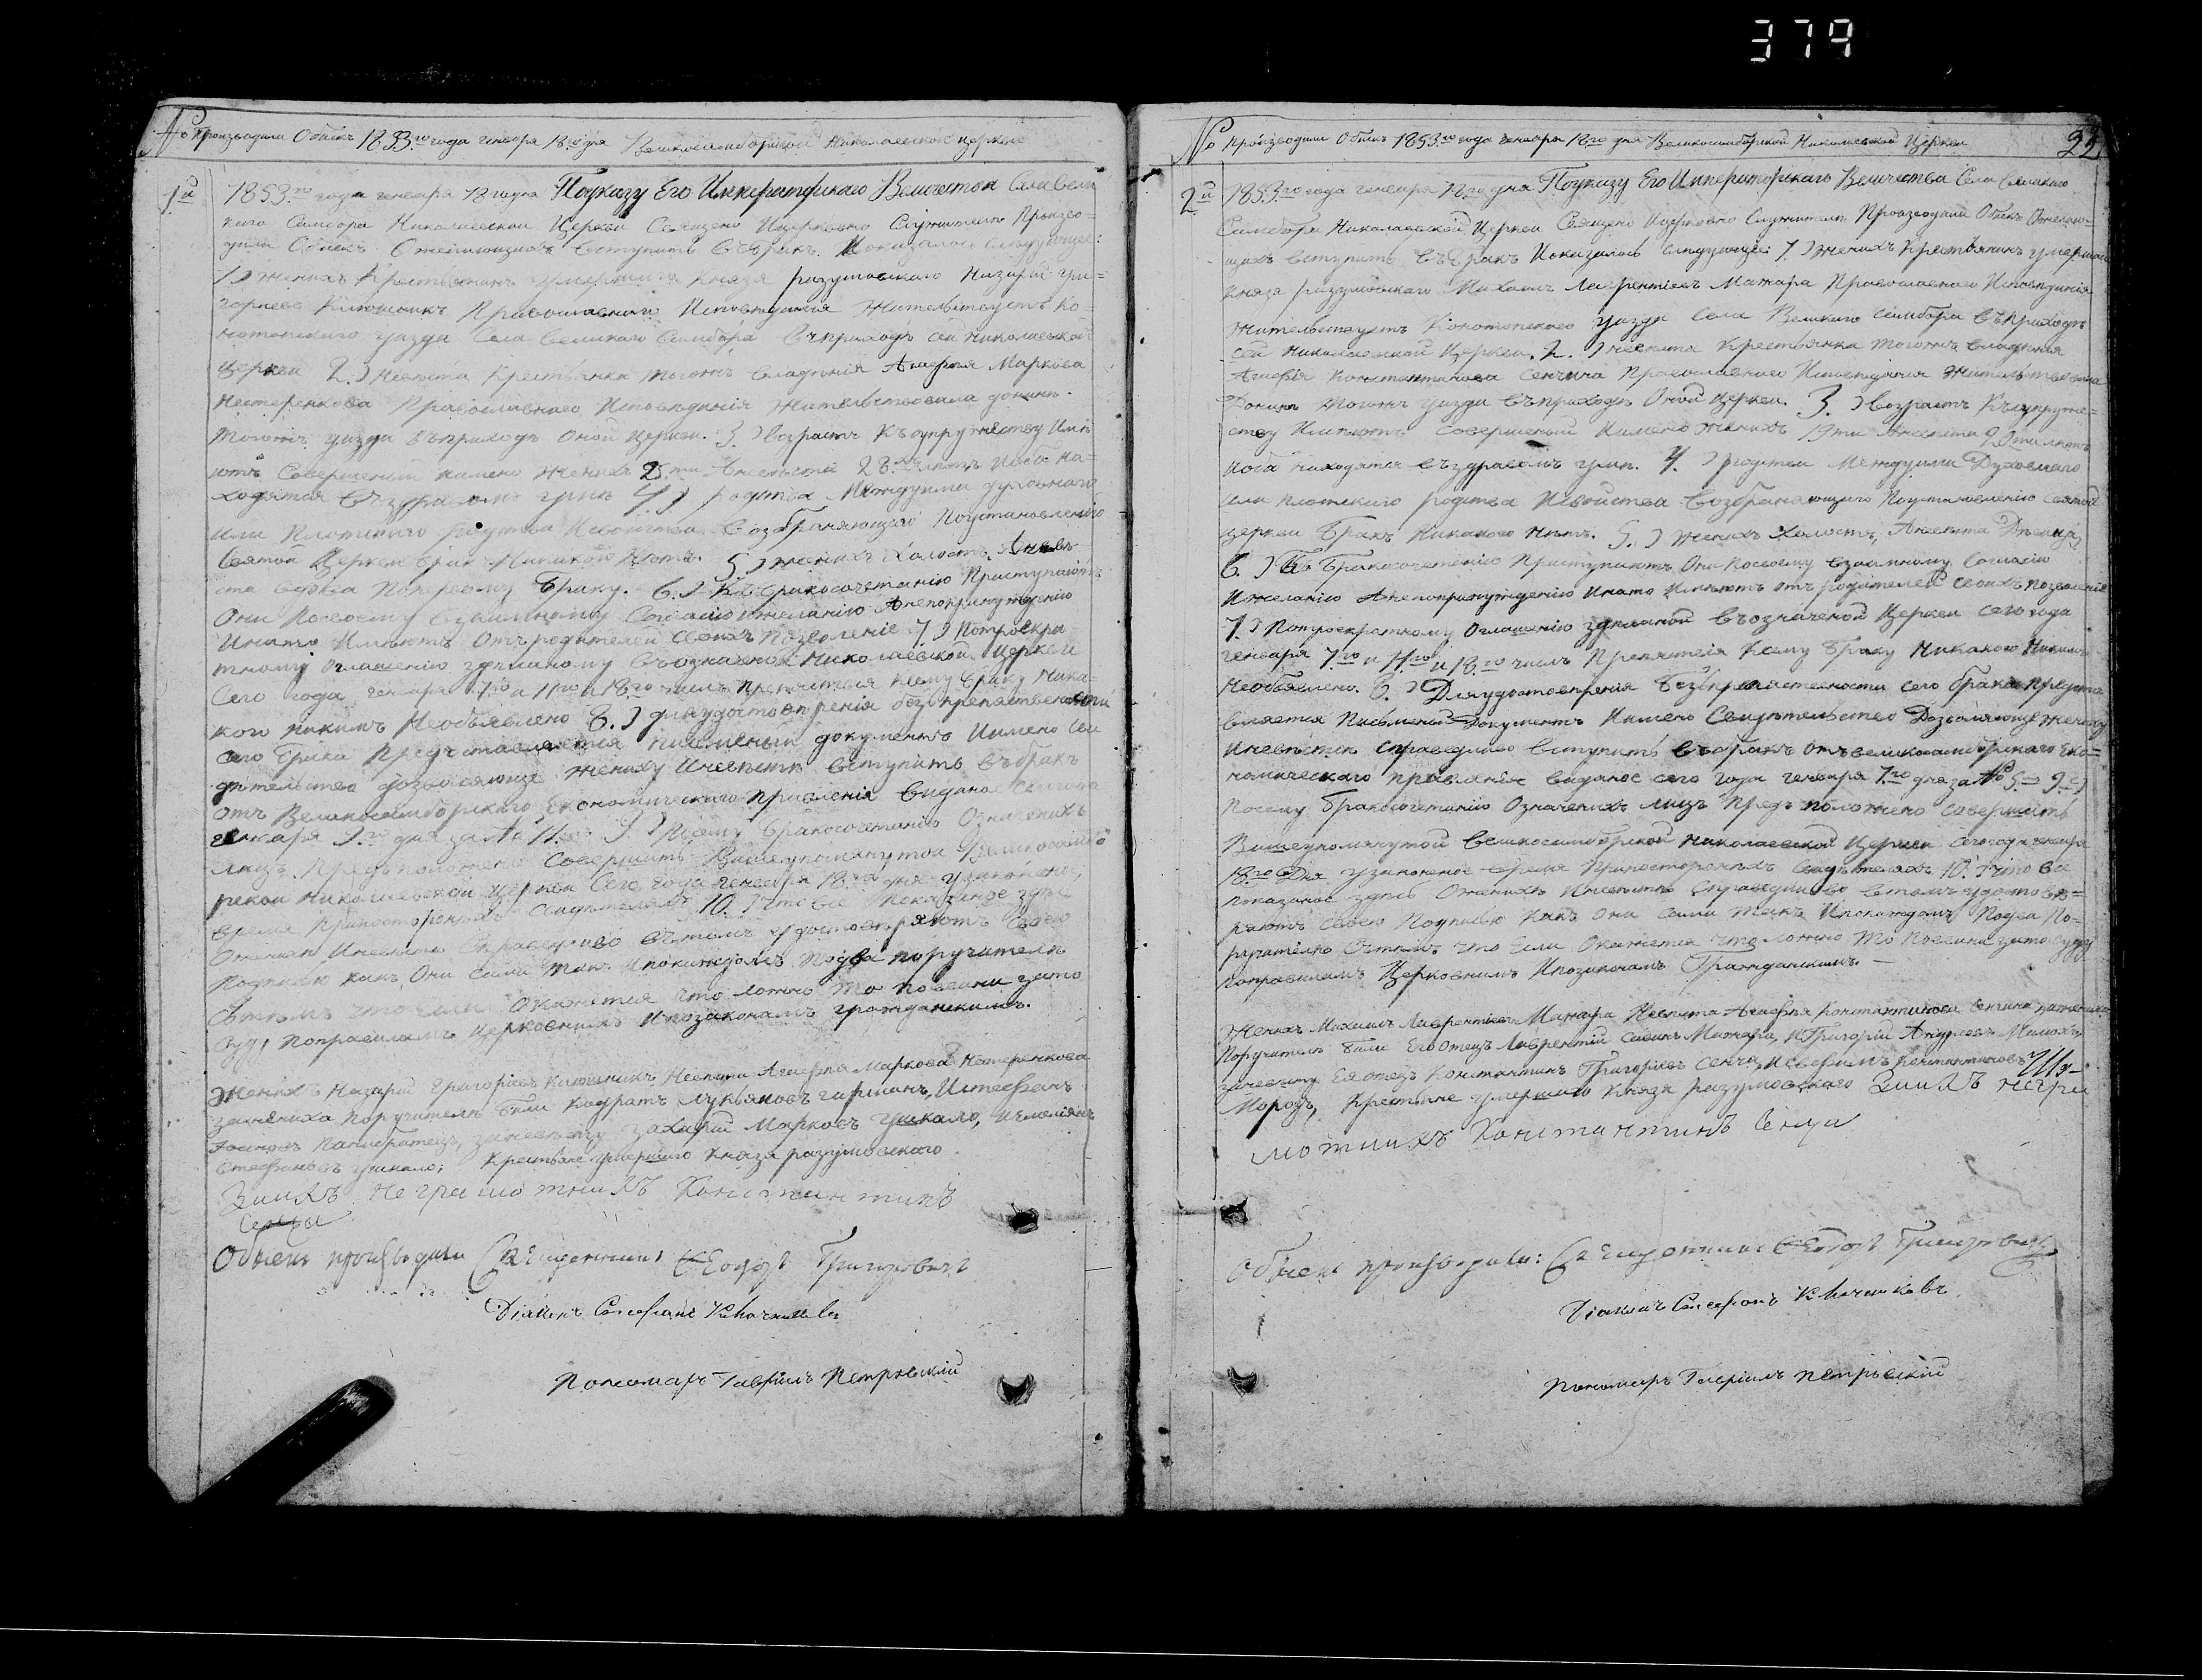 379
№ Производили Обыскъ 1853.го года генваря 18.го дня Великосамборской Николаевской церкви
1й
1853.го года генваря 18 го дня Поуказу Его Императорскаго Величества Села Вели
каго Самбора Николаевской Церкви Священо Ицерковно Служители Произво-
дили Обыскъ Ожелающихъ Вступить въбракъ. Иоказалось следующее:
1) женихъ Крестьянинъ умершаго Князя разумовскаго Назарий гри-
горьевъ Ключникъ Православнаго Исповеданія Жительствуетъ Ко-
нотопскаго уезда Села Великаго Самбора Въприходе сей Николаевской
Церкви 2.) Невеста Крестьянка тогожъ владенія Агафія Маркова
Нестеренкова Православнаго Исповеданія Жительствовала доныне
тогожъ уезда въприходе оной Церкви. 3.) возрастъ Къ супружеству Име
ютъ Совершеный имено женихъ 25ти Аневеста 28. летъ Иоба на-
ходятся въздравомъ уме 4.) родства Междуими духовнаго
или Плотскаго родства Исвойства Возбраняющаго Поустановленію
Святой Церкви брак Никакого Нетъ. 5) женихъ Холостъ, Аневе
ста вдова Попервому браку. 6.) Къбракосочетанію Приступаютъ
Они Посвоему Взаимному Согласію ижеланію Анепопринуждению
Инато Имеютъ Отъродителей Своихъ Позволеніе 7.) Потроекра
тному Оглашению зделаному Въозначеной Николаевской Церкви
Сего года генваря 7го и 11го и 18.го числъ Препятствія Ксему браку Ника-
кого никимъ Необъявлено 8.) дляудостоверенія безъпрепятствености
сего брака Представляется писменый документъ Имено Сви
детельство дозволяюще жениху Иневесте Вступить въбракъ
отъ Великосамборскаго Економическаго правленія Виданое сегогода
генваря 9.го дня за № 11. 9.) Посему бракосочетанію Означеныхъ
лицъ Предположено Совершить Вышеупомянутой Великосамбо
рской Николаевской Церкви Сего года генваря 18.го дня узаконеное
время Припостороныхъ Свидетеляхъ 10.) что все показаное здесь
Ожених Иневесте Справедливо Вътомъ удостоверяютъ Своею
Подписью какъ Они сами такъ Ипокаждомъ Подва Поручителя
Стемъ что если Окажется что ложно то повины зато
суду Поправиламъ Церковнимъ Ипозаконамъ гражданскимъ.
Женихъ Назарий Григорьевъ Ключникъ Невеста Агафія Маркова Нестеренкова
зажениха Поручители Были Кодратъ Лукьяновъ гирманъ, Истефанъ
Иосиповъ Папиборецъ, заневесту захарий Марковъ Гукало, Иемелиянъ
Стефановъ гукало; Крестьяне умершаго Князя разумовскаго
Заихъ неграмотнихъ Константинъ
Сенча
Обыскъ производили Священникъ Феодоръ Григоровичъ
Діаконъ Стефанъ Ключниковъ
Пономаръ Гавріилъ Петровский
№ Производили Обыскъ 1853.го года генваря 18го дня Великосамборской Николаевской Церкви
22
2й
1853.го года генваря 18.го дня Поуказу Его Императорскаго Величества Села Великаго
Самбора Николаевской Церкви Священо Ицерковно Служители Произзводили Обыскъ Ожелаю-
щихъ вступить въбракъ Иоказалось следующее: 1.) женихъ Крестьянинъ умершаго
Князя разумовскаго Михаилъ Лаврентіевъ Мажара Православнаго Исповеданія
Жительствуетъ Конотопскаго уезда Села Великаго Самбора въприходе
сей Николаевской Церкви. 2.) невеста Крестьянка тогожъ владенія
Агафія Константинова Сенчина Православнаго Исповеданія Жительствовала
Доныне тогожъ уезда въприходе Оной Церкви. 3.) возрастъ Късупруже-
ству Имеютъ Совершеный Имено женихъ 19ти Аневеста 20ти летъ
Иоба находятся въздравомъ уме. 4.) родства Междуими Духовнаго
или плотскаго родства Исвойства возбраняющаго Поустановленію святой
церкви бракъ Никакого Нетъ. 5.) женихъ Холостъ, Аневеста Девица,
6.) Къ Бракосочетанію Приступаютъ Они Посвоему взаимному Согласію
Ижеланію Анепопринуждению Инато Имеютъ отъ родителей своихъ позволеніе
7.) Потроекратному Оглашению зделаной въозначеной Церкви сего года
генваря 7го и 11го и 18.го числъ Препятствія Ксему браку Никакого Никимъ
Необъявлено. 8.) Дляудостоверенія безъпрепятствености сего брака предста
вляется Письменый Документъ Имено Свидетельство Дозволяюще жениху
Иневесте справедливо Вступить въбракъ отъвеликосамборскаго Еко=
номическаго правленія виданое сего года генваря 7.го дня за № 5. 9.)
Посему бракосочетанію Означеныхъ лицъ Предъположено совершить
Вышеупомянутой великосамборской николаевской Церкви сегогода генваря
18.го дня узаконеное время Припостороныхъ Свидетеляхъ 10.) что все
показаное здесь Ожених Иневесте Справедливо втомъ удостове=
ряютъ своею Подписью какъ Они сами такъ Ипокаждомъ Подва По-
ручителю Стемъ что Если Окажется что ложно то Повины зато суду
поправиламъ Церковнимъ Ипозаконамъ Гражданскимъ.
Женихъ Михаилъ Лаврентіевъ Мажара Невеста Агафія Константинова Сенчина зажениха
Поручители Были Его отецъ Лаврентій Савинъ Мажара, Игригорій Андреевъ
заневесту Ея отецъ Константинъ Григоріевъ Сенча, Иевфимъ Константиновъ
Морозъ, Крестьяне умершаго Князя разумовскаго Заихъ негра
мотнихъ Константинъ Сенча
Обыскъ производили: Священникъ Феодоръ Григоровичъ
Діаконъ Стефанъ Ключниковъ
Пономаръ Гавріилъ Петровский